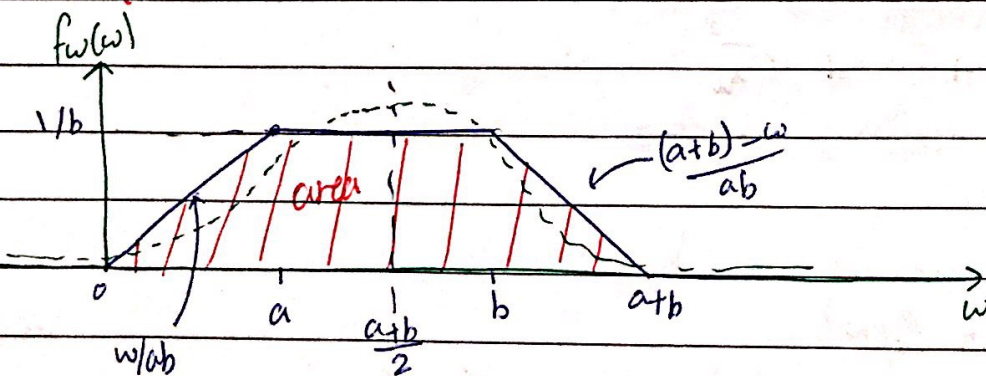 fw(w)
1/b
area
(a+b)-w
ab
0
a
a+b
2
b
a+b
w
w/ab